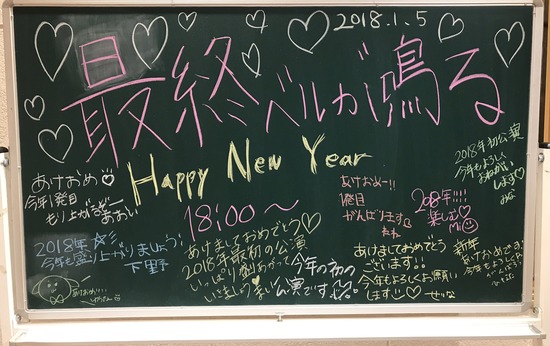 2018.1.5
最終ベルが鳴る
Happy New Year
18:00～
あけおめ
今年1発目
もりよがるぞー
あおい
2018年
今年も盛り上がりましょう!
下野
あけましておめでとう♡
2018年最初の公演
いっぱい盛りあがって
いきましょう
今年の初
公演です
あけおめー!!
1発目
がんばります
2018年!!!!
楽しむ♡
Mi
2018年初公演
今年もよろしく
おねがい
します♡
みな
あけましておめでとう
ございます!!
今年もよろしくお願い
します
せいな
新年
あけおめです
今年もよろしく
がんばります